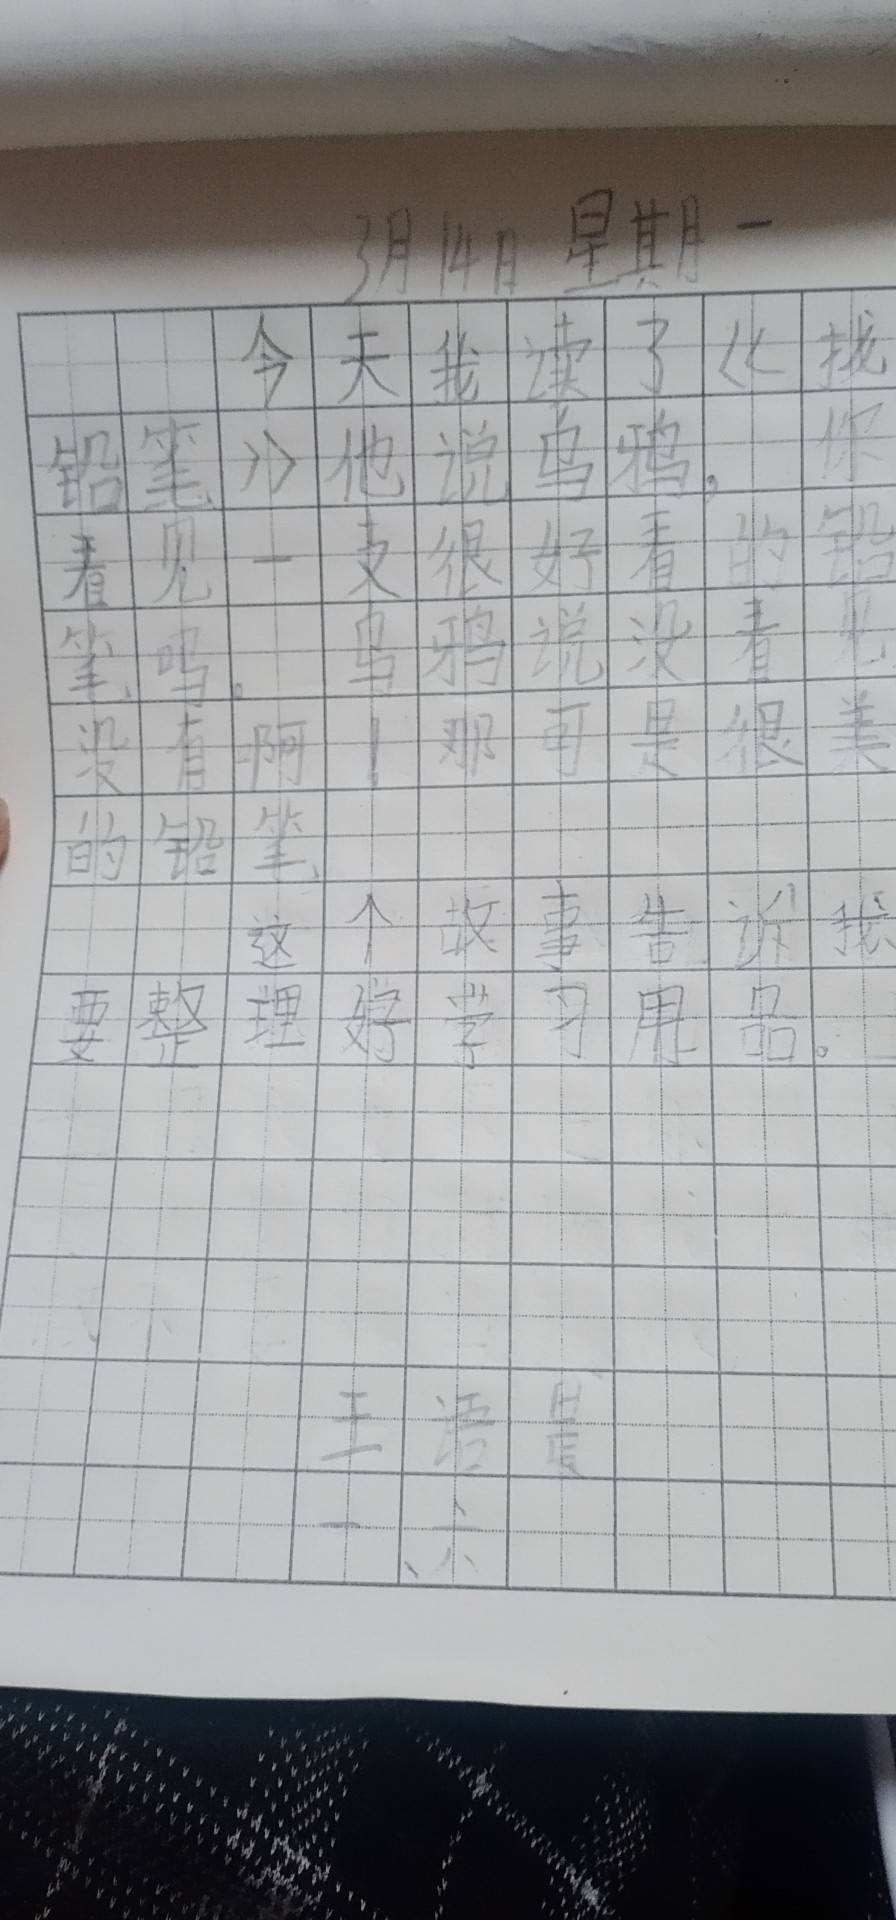 3月14日 星期一
今天我读了《找
铅笔》他说乌鸦,你
看见一支很好看的铅
笔吗。乌鸦说没看见
没有啊!那可是很美
的铅笔
这个故事告诉我
要整理好学习用品。
王语
一、六